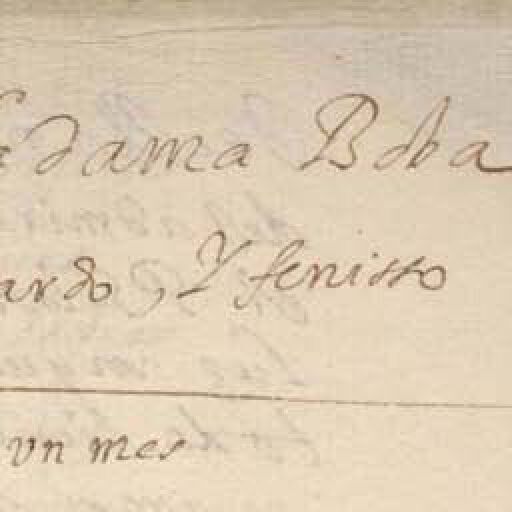 adama Boba
ardo, Y fenisso
vn mes